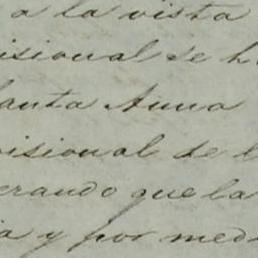 a la vista
isional de h
anta Anna
visional de l
erando que la
ia y por med